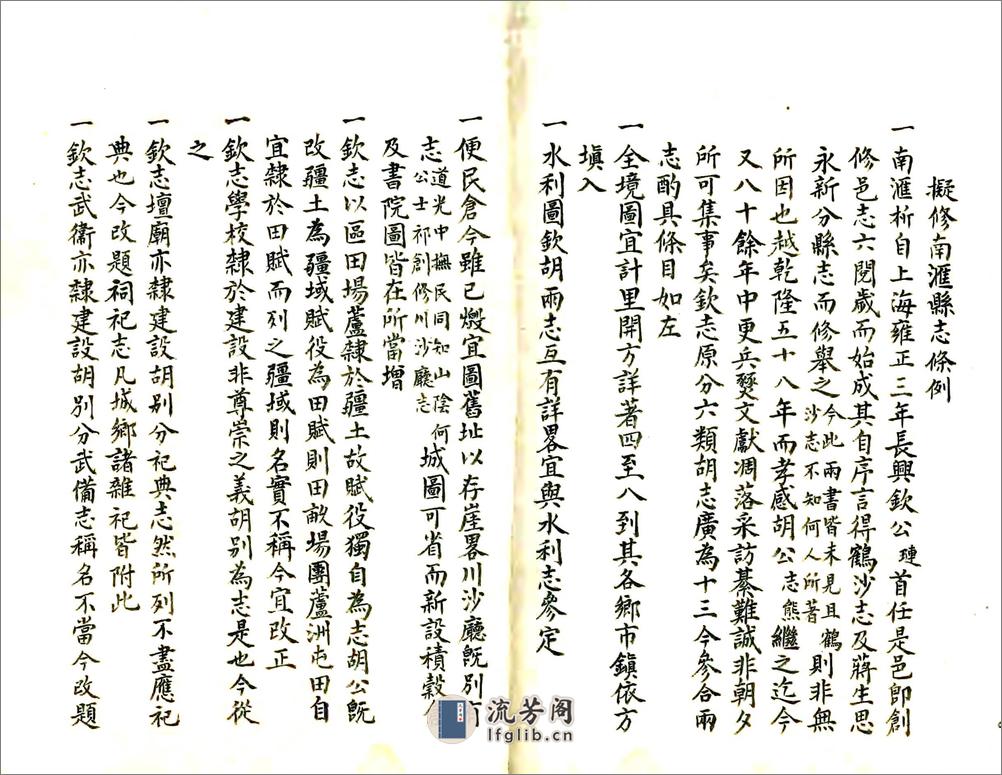 擬修南滙縣志條例
一南滙析自上海雍正三年長興欽公璉首任是邑卽創
修邑志六閱歲而始成其自序言得鶴沙志及蔣生思
永新分縣志而修舉之今此兩書皆未見且鶴沙志不知何人所著則非無
所因也越乾隆五十八年而孝感胡公志熊繼之迄今
又八十餘年中更兵燹文獻凋落采訪綦難誠非朝夕
所可集事矣欽志原分六類胡志廣為十三今參合兩
志酌具條目如左
一全境圖宜計里開方詳著四至八到其各鄉市鎮依方
塡入
一水利圖欽胡兩志互有詳畧宜與水利志參定
一便民倉今雖已燬宜圖舊址以存崖畧川沙廳旣別有
志道光中撫民同知山陰何公士祁創修川沙廳志城圖可省而新設積穀
及書院圖皆在所當增
一欽志以區田場蘆隸於疆土故賦役獨自為志胡公旣
改疆土為疆域賦役為田賦則田畝場團蘆洲屯田自
宜隸於田賦而列之疆域則名實不稱今宜改正
一欽志學校隸於建設非尊崇之義胡別為志是也今從
之
一欽志壇廟亦隸建設胡别分祀典志然所列不盡應祀
典也今改題祠祀志凡城鄉諸雜祀皆附此
一欽志武衞亦隸建設胡別分武備志稱名不當今改題
流芳阁
lfglib.cn